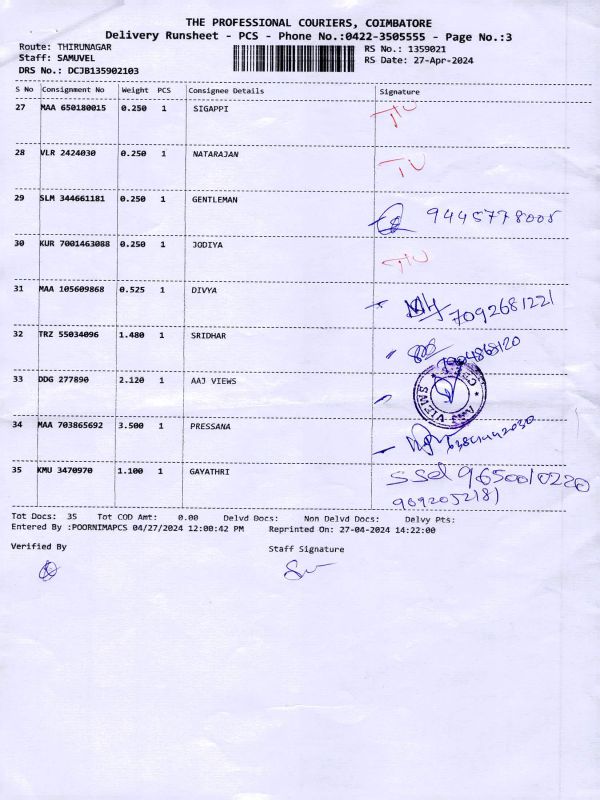 THE PROFESSIONAL COURIERS, COIMBATORE
Delivery Runsheet - PCS - Phone No.:0422-3505555 - Page No.:3
Route: THIRUNAGAR RS No.: 1359021
Staff: SAMUVEL RS Date: 27-Apr-2024
DRS No.: DCJB135902103
S No Consignment No Weight PCS Consignee Details Signature
27 MAA 650180015 0.250 1 SIGAPPI
28 VLR 2424030 0.250 1 NATARAJAN
29 SLM 344661181 0.250 1 GENTLEMAN 9445778005
30 KUR 7001463088 0.250 1 JODIYA
31 MAA 105609868 0.525 1 DIVYA 7092681221
32 TRZ 55034096 1.480 1 SRIDHAR
33 DDG 277890 2.120 1 AAJ VIEWS
34 MAA 703865692 3.500 1 PRESSANA
35 KMU 3470970 1.100 1 GAYATHRI 9650010220
9092052181
Tot Docs: 35 Tot COD Amt: 0.00 Delvd Docs: Non Delvd Docs: Delvy Pts:
Entered By :POORNIMAPCS 04/27/2024 12:00:42 PM Reprinted On: 27-04-2024 14:22:00
Verified By Staff Signature